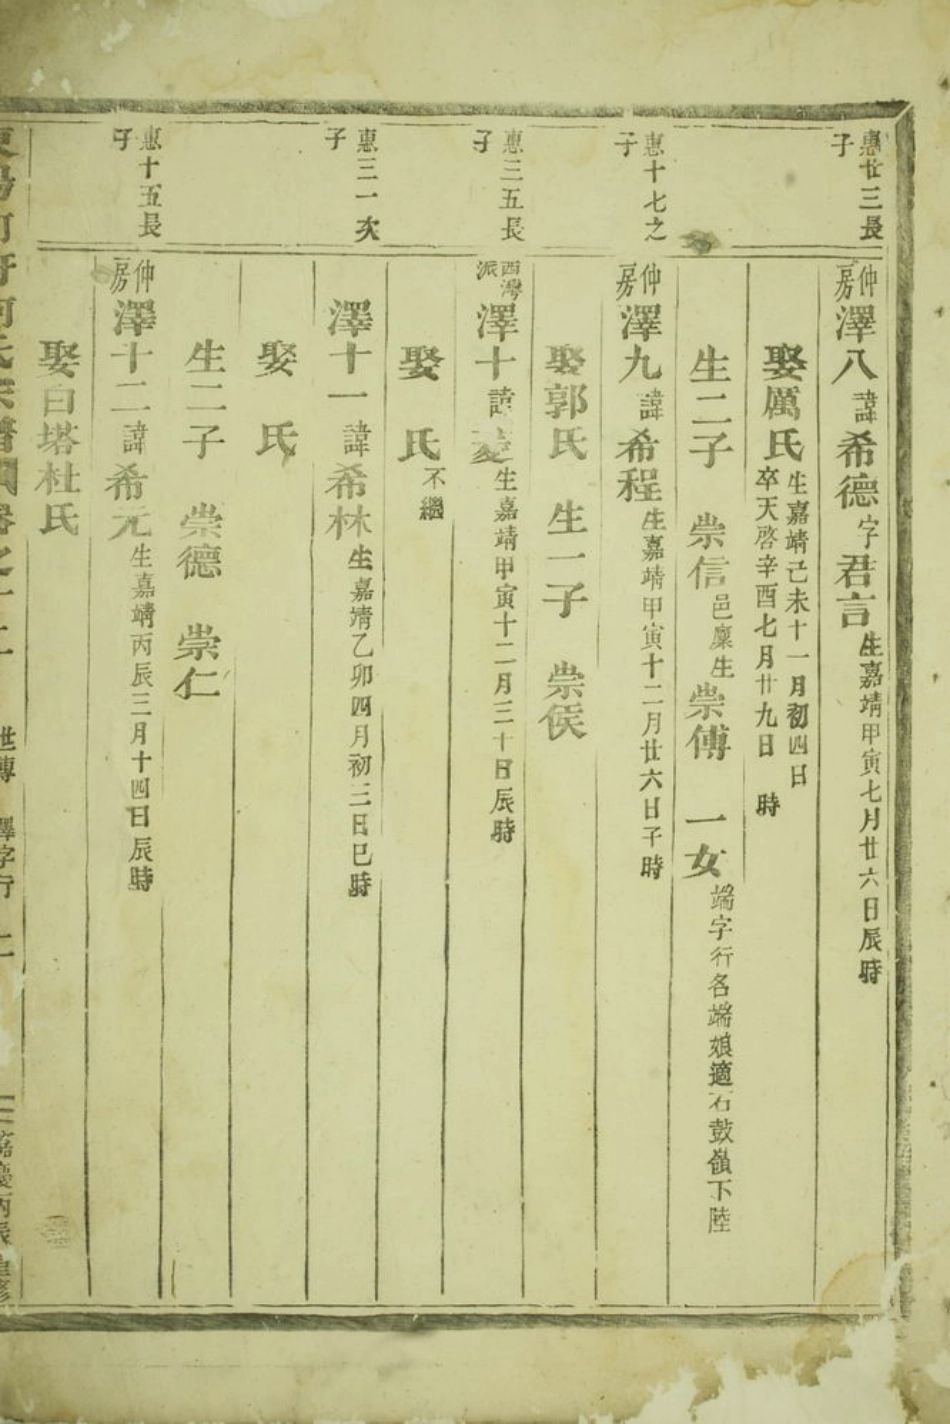 惠廿三長子
仲房澤八諱希德字君言生嘉靖甲寅七月廿六日辰時
娶厲氏生嘉靖己未十一月初四日
卒天啓辛酉七月廿九日 時
生二子 崇信邑廩生崇傅 一女端字行名端娘適石鼓嶺下陸
惠十七之子
仲房澤九諱希程生嘉靖甲寅十二月廿六日子時
娶郭氏 生一子 崇侯
惠三五長子
西灣派澤十諱 生嘉靖甲寅十二月三十日辰時
娶 氏不繼
惠三一次子
澤十一諱希林生嘉靖乙卯四月初三日巳時
娶 氏
生二子 崇德 崇仁
惠十五長子
仲房澤十二諱希元生嘉靖丙辰三月十四日辰時
娶白塔杜氏
世傳 澤字行